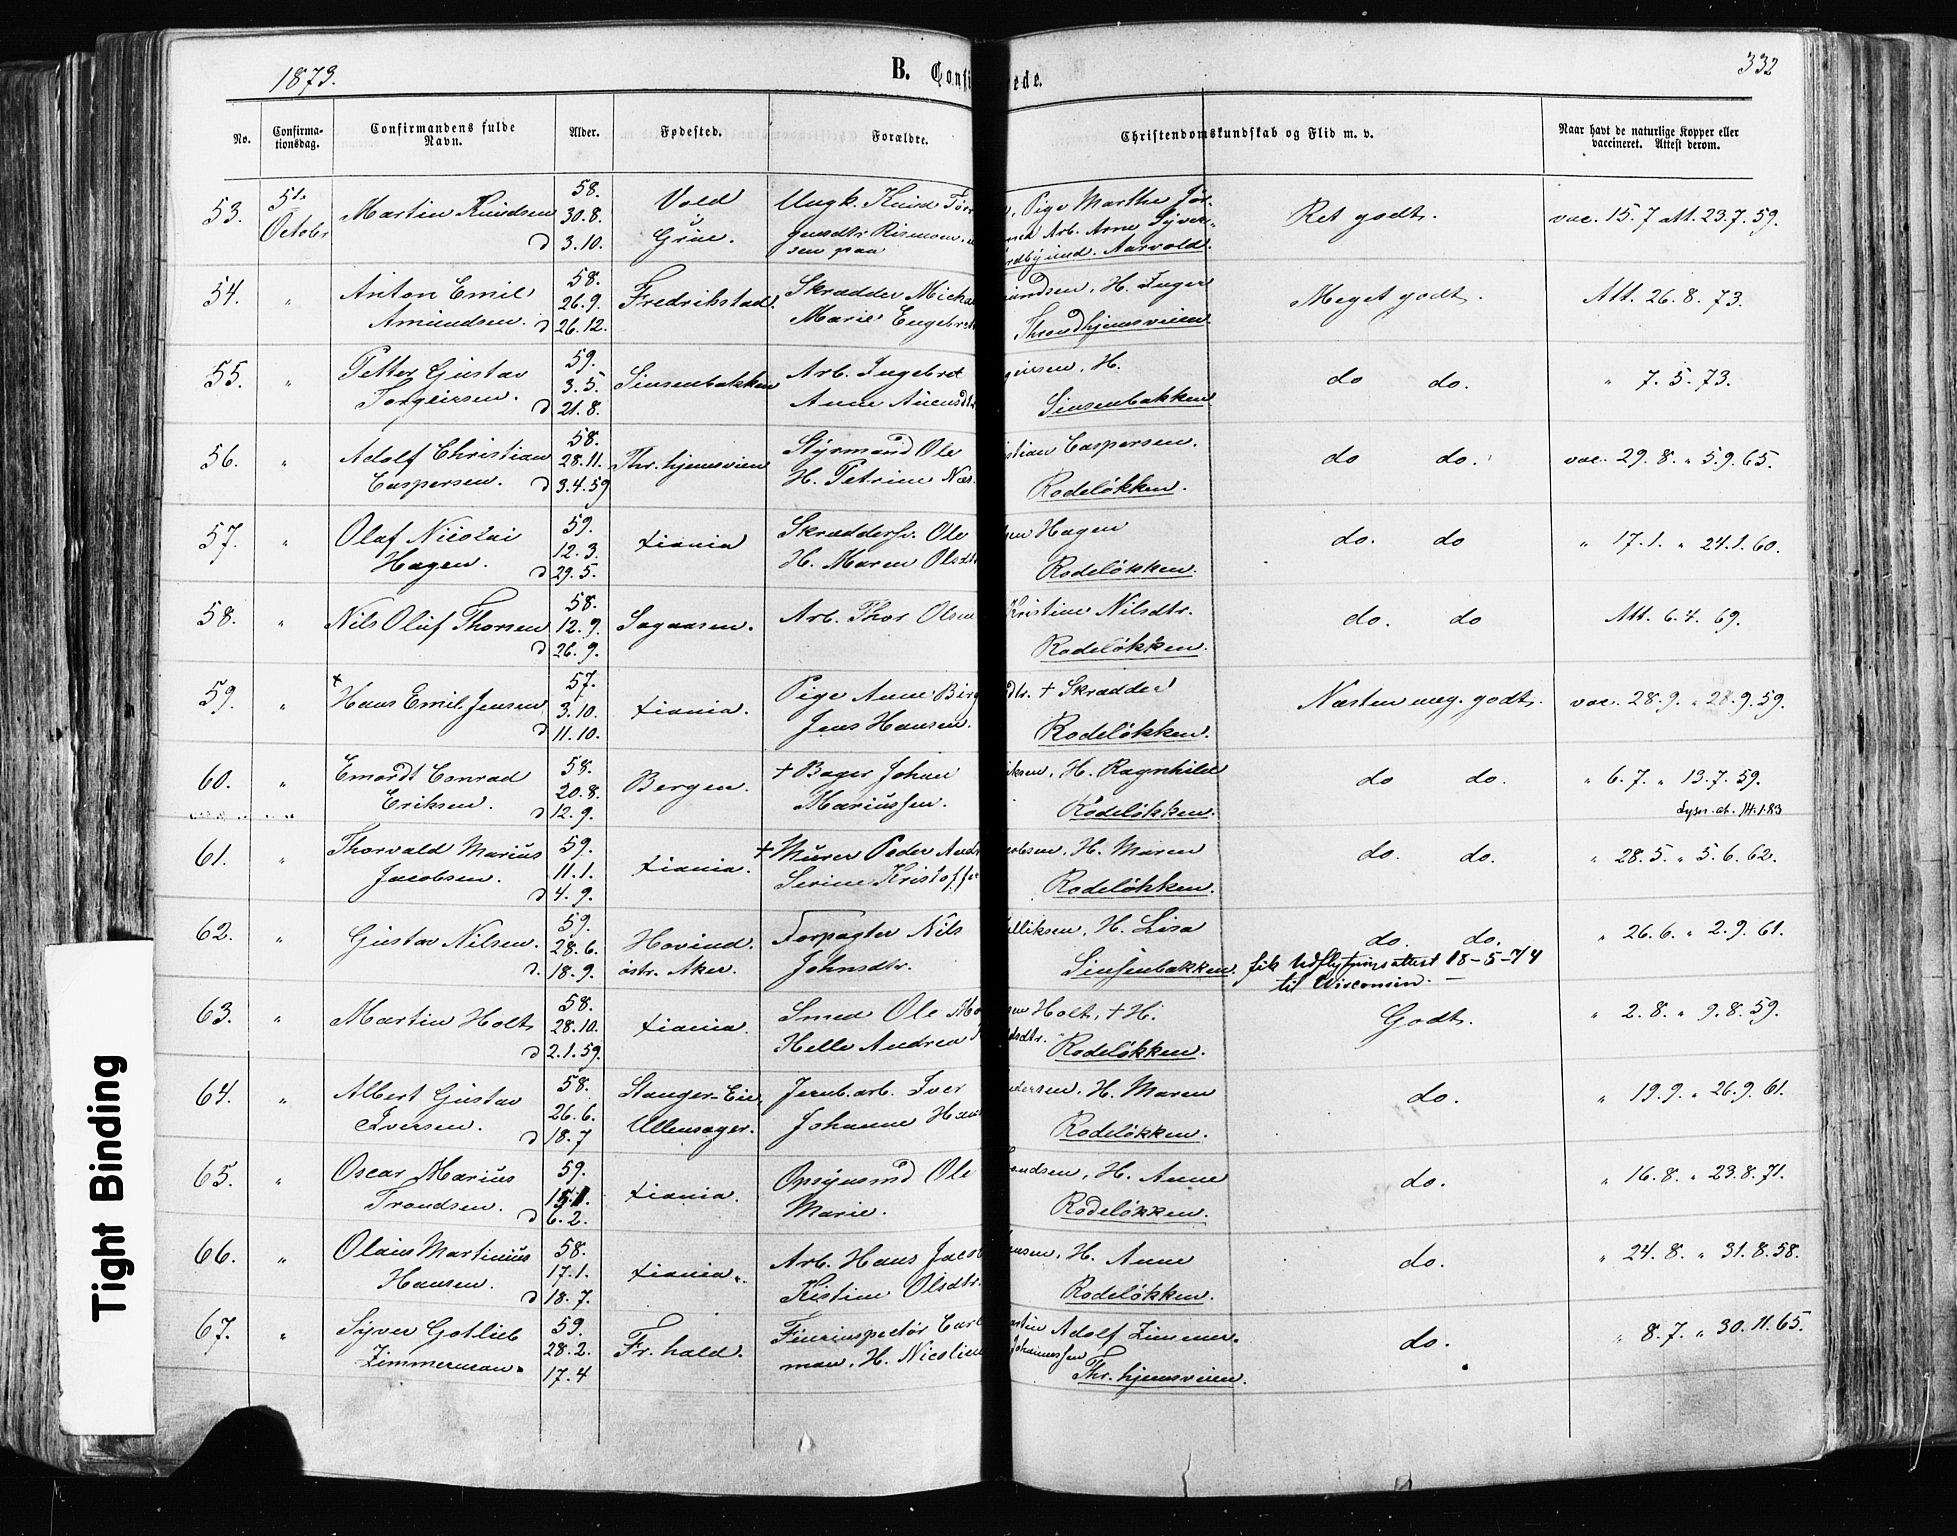 1873.
B. Confi
ede.
332
No.
Confirma-
tionsdag.
Confirmandens fulde
Navn.
Alder.
Fødested.
Forældre.
Christendomskundskab og Flid m. v.
Naar havt de naturlige Kopper eller
vaccineret. Attest derom.
53. 5te Martin Knudsen 58. Vold Ungk. Knud Tørr , Pige Marthe Jør- Ret godt. vac. 15.7 att. 23.7.59.
October 30.8. Grue. Arb. Arne Syver-
d 3.10. sen paa Aarvold.
54. " Anton Emil 58. Fredrikstad. Skrædder Micha undsen, H. Inger Meget godt. Att. 26.8.73.
Amundsen. 26.9. Marie Engebret Throndhjemsveien.
d 26.12.
55. " Petter Gustav 59. Sinsenbakken Arb. Ingebret geirsen, H. do do. " 7.5.73.
Torgeirsen. 3.5. Anne Sinsenbakken.
d 21.8.
56. " Adolf Christian 58. Thr.hjemsveien Styrmand Ole stian Caspersen. do do. vac. 29.8. " 5.9.65.
Caspersen. 28.11. H. Petrine Næs. Rodeløkken.
d 3.4.59
57. " Olaf Nicolai 59. Xiania Skræddersv. Ole sen Hagen do. do " 17.1. " 24.1.60.
Hagen. 12.3. H. Maren Olsdt Rodeløkken.
d 29.5.
58. " Nils Oluf Thorsen 58. Sagaasen. Arb. Thor Olsen Kristine Nilsdtr. do. do Att. 6.4.69.
12.9. Rodeløkken.
d 26.9.
59. " + Hans Emil Jensen 57. Xiania. Pige Anne Birg dtr. + Skrædder Næsten meg. godt. vac. 28.9. " 28.9.59.
3.10. Jens Hansen. Rodeløkken.
d 11.10.
60. " Emordt Conrad 58. Bergen. + Bager Johan iksen, H. Ragnhild do do. " 6.7. " 13.7.59.
Eriksen. 20.8. Mariussen. Rodeløkken. Lysn. at. 14.1.83
d 12.9.
61. " Thorvald Marius 59. Xiania. + Murer Peder Andr cobsen, H. Maren do. do. " 28.5. " 5.6.62.
Jacobsen. 11.1. Serine Kristoffe Rodeløkken.
d 4.9.
62. " Gustav Nilsen. 59. Hovind. Forpagter Nils ulliksen, H. Lisa do. do. " 26.6. " 2.9.61.
28.6. østr. Aker. Johnsdtr. Sinsenbakken. fik Udflytningsattest 18-5-74
d. 18.9. til Wisconsin. -
63. " Martin Holt 58. Xiania. Smed Ole Mo sen Holt, + H. Godt. " 2.8. " 9.8.59.
28.10. Helle Andrea dsdtr. Rodeløkken.
d 2.1.59.
64. " Albert Gustav 58. Stanger-Eie, Jernb.arb. Iver ndersen, H. Maren do. " 19.9. " 26.9.61.
Iversen. 26.6. Ullensager. Johanne Hans Rodeløkken.
d 18.7
65. " Oscar Marius 59. Xiania. Opsynsmd Ole ondsen, H. Anne do. " 16.8. " 23.8.71.
Trondsen. 15.1. Marie. Rodeløkken.
d 6.2.
66. " Olaus Martinius 58. Xiania. Arb. Hans Jacob ansen, H. Anne do. " 24.8. " 31.8.58.
Hansen. 17.1. Kistine Olsdtr. Rodeløkken.
d 18.7.
67. " Syver Gotlieb 59. Fr.hald. Fineinspectør Carl artin Adolf Zimmer- do. " 8.7. " 30.11.65.
Zimmerman. 28.2. man, H. Nicoline Johannessen
17.4 Thr.hjemsveien.
Tight Binding